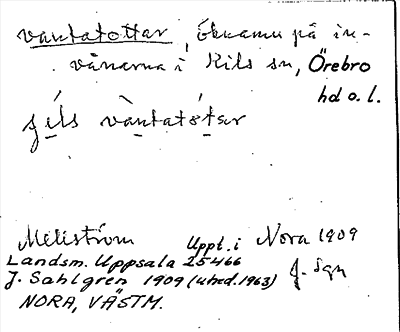 vantatottar, öknamn på in-
vånarna i Kils sn, Örebro
hd o. l.
vàntatótar
Uppt. i Nora 1909
Landsm. Uppsala 25466
J. Sahlgren 1909 (uhed. 1963) J. Sgn
NORA, VÄSTM.